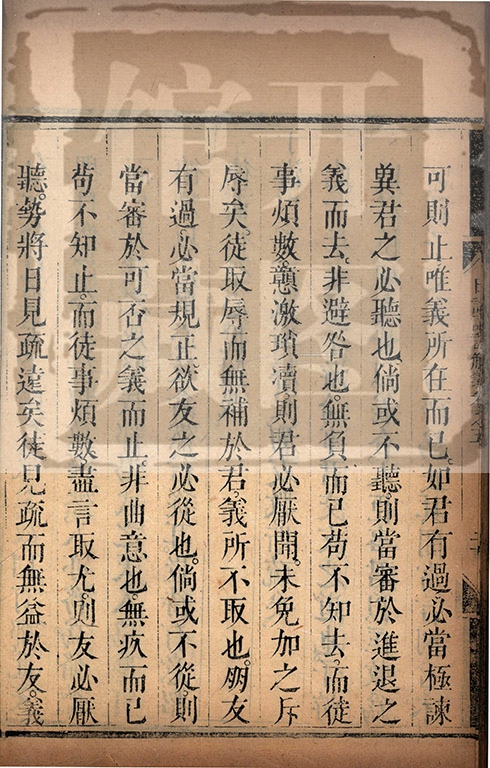 可則止唯義所在而已如君有過必當極諫
兾君之必聽也倘或不聽則當審於進退之
義而去非避咎也無負而已苟不知去而徒
事煩數戇激瑣凟則君必厭聞未免加之斥
辱矣徒取辱而無補於君義所不取也朋友
有過必當規正欲友之必從也倘或不從則
當審於可否之義而止非曲意也無疚而已
苟不知止而徒事煩數盡言取尤則友必厭
聽勢將日見疏遠矣徒見疏而無益於友義